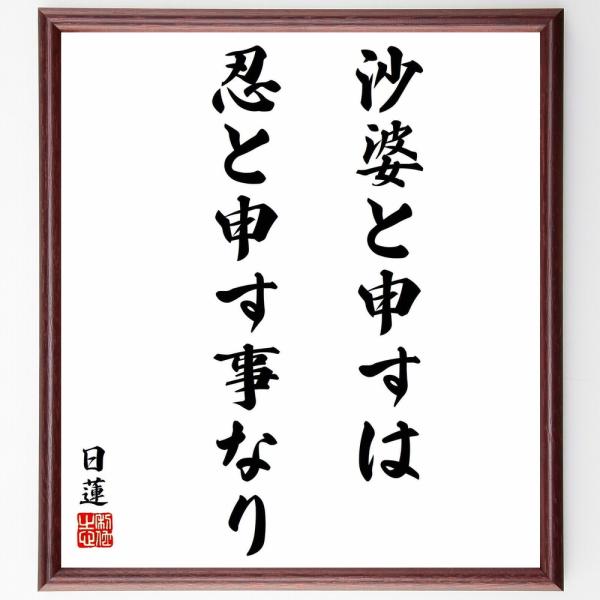 沙婆と申すは
忍と申す事なり
日蓮